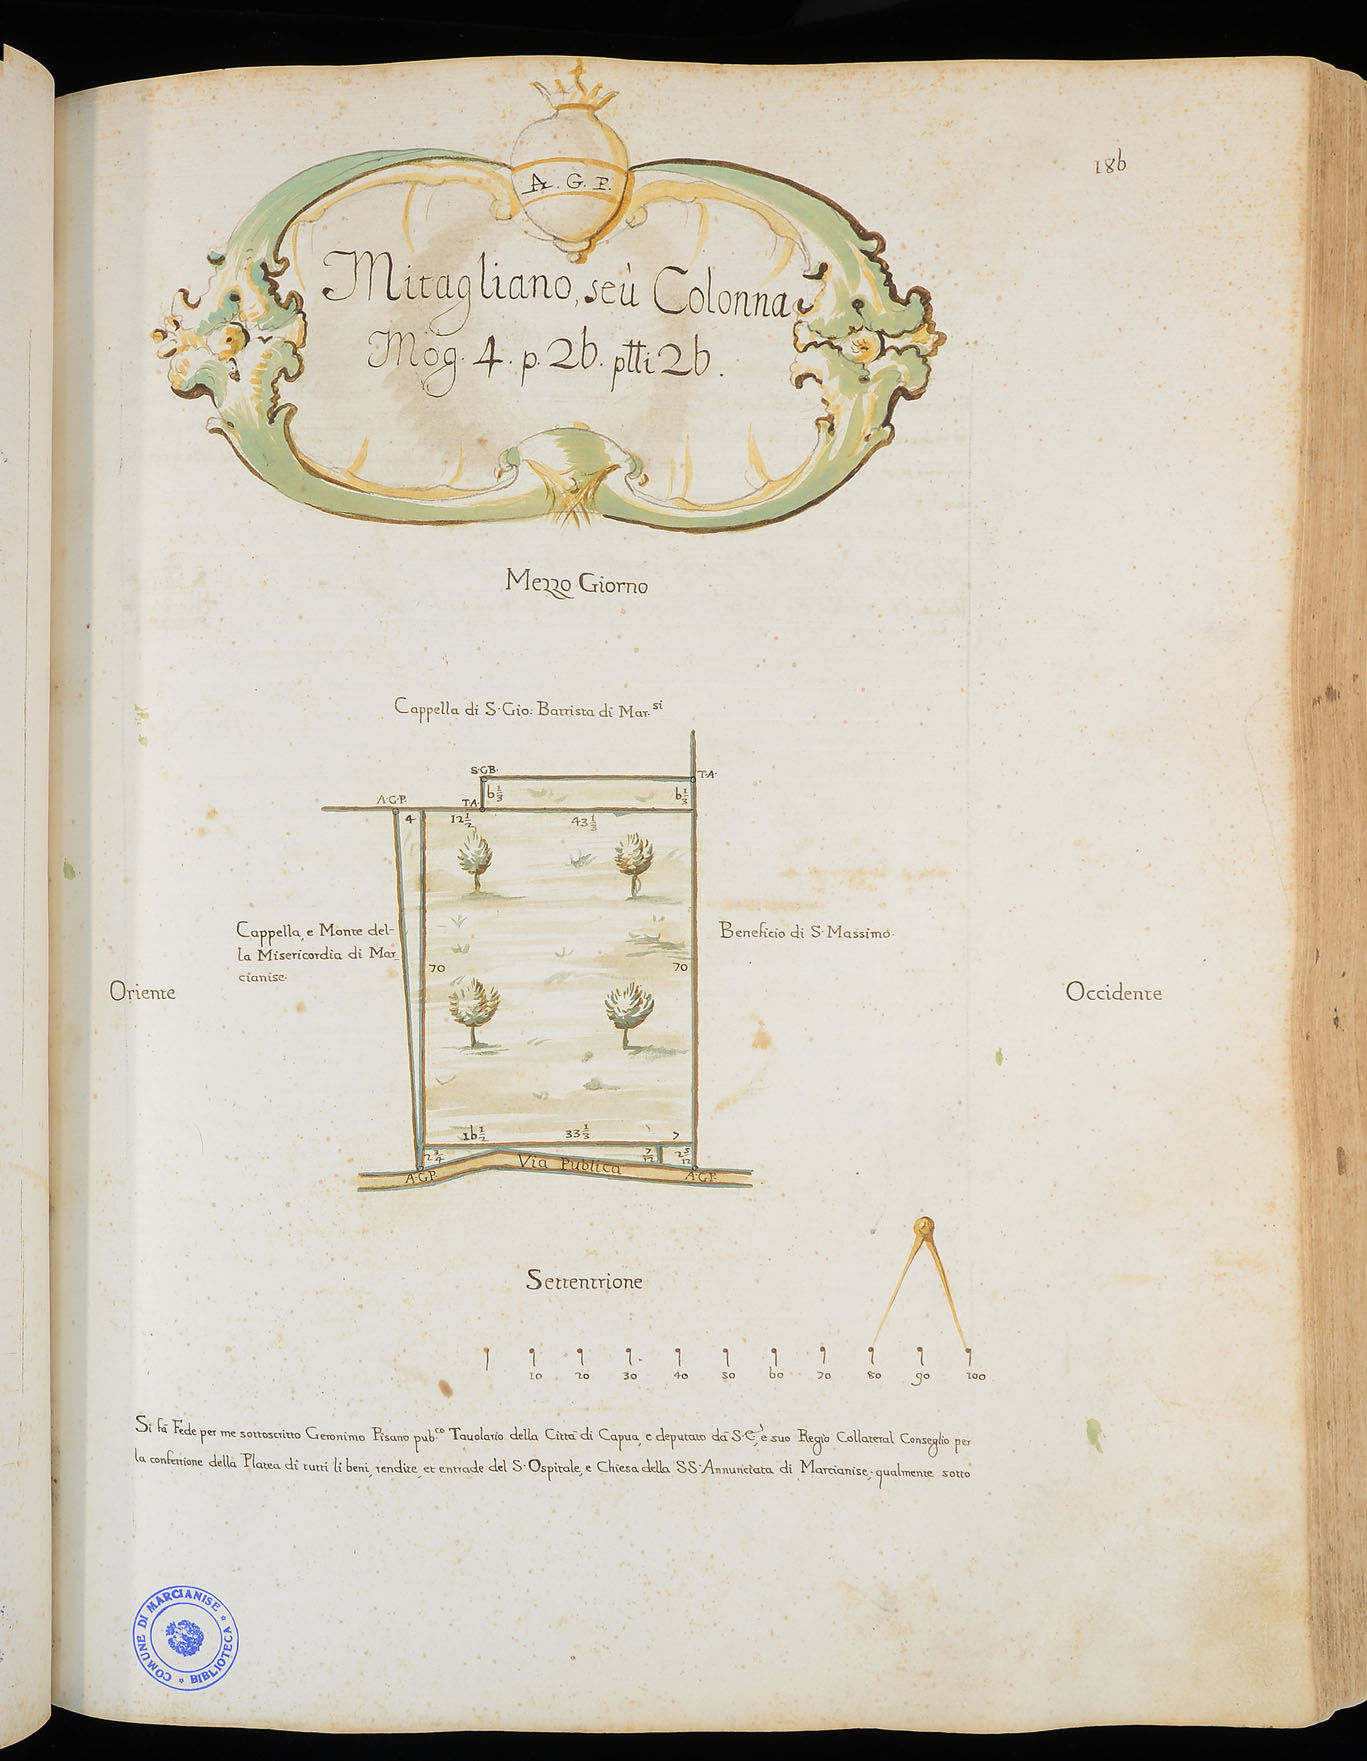 186
A. G. P.
Mitagliano, seù Colonna
Mog. 4. p. 26. ptti 26.
Mezzo Giorno
Cappella di S. Gio: Battista di Mar.si
S.G.B.
T.A.
6 1/3
6 1/3
A.G.P.
T.A.
4
12 1/2
43 1/3
Cappella, e Monte del-
la Misericordia di Mar_
cianise.
Beneficio di S. Massimo.
70
70
Oriente
Occidente
16 1/2
33 1/3
7
2 3/4
7/12
2 5/12
Via Publica
A.G.P.
A.G.P.
Settentrione
10 20 30 40 50 60 70 80 90 100
Si fà Fede per me sottoscritto Geronimo Pisano pub.co Tavolario della Città di Capua, e deputato dà S.E., è suo Regio Collateral Conseglio per
la confettione della Platea di tutti li beni, rendite, et entrade del S. Ospitale, e Chiesa della SS. Annunciata di Marcianise, qualmente sotto
COMUNE DI MARCIANISE
BIBLIOTECA